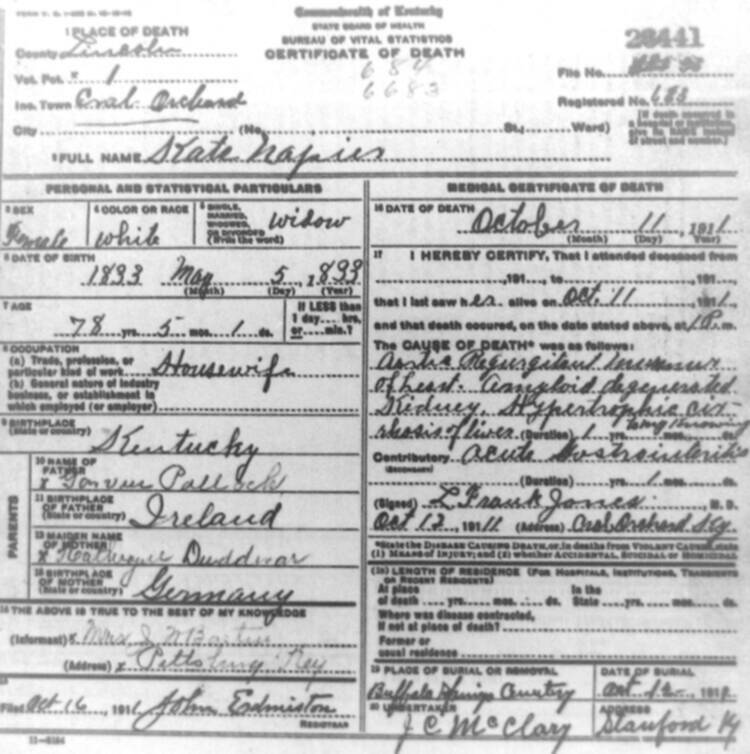 Commonwealth of Kentucky
STATE BOARD OF HEALTH
BUREAU OF VITAL STATISTICS
CERTIFICATE OF DEATH
1 PLACE OF DEATH
County Lincoln
Vot. Pct. x 1
Inc. Town Crab Orchard
684
6683
28441
File No.
Registered No. 683
[If death occurred in a hospital or institution give its NAME instead of street and number.]
City (No. St.; Ward)
2 FULL NAME Kate Napier
PERSONAL AND STATISTICAL PARTICULARS
3 SEX
Female
4 COLOR OR RACE
white
5 SINGLE, MARRIED, WIDOWED, OR DIVORCED (Write the word)
widow
6 DATE OF BIRTH
1833 May 5, 1833
(Month) (Day) (Year)
7 AGE
78 yrs. 5 mos. 1 ds.
If LESS than
1 day hrs.
or min.?
8 OCCUPATION
(a) Trade, profession, or
particular kind of work Housewife
(b) General nature of industry
business, or establishment in
which employed (or employer)
9 BIRTHPLACE
(State or country) Kentucky
PARENTS
10 NAME OF
FATHER
x Pollock
11 BIRTHPLACE
OF FATHER
(State or country) Ireland
12 MAIDEN NAME
OF MOTHER
13 BIRTHPLACE
OF MOTHER
(State or country) Germany
14 THE ABOVE IS TRUE TO THE BEST OF MY KNOWLEDGE
(Informant) x Mrs J N
(Address) x Ky
15
Filed Oct 16, 1911 John Edmiston
REGISTRAR
11-6184
MEDICAL CERTIFICATE OF DEATH
16 DATE OF DEATH
October 11, 1911
(Month) (Day) (Year)
17 I HEREBY CERTIFY, That I attended deceased from
, 191 , to , 191 ,
that I last saw her alive on Oct. 11 1911,
and that death occured, on the date stated above, at 1 P. m.
The CAUSE OF DEATH* was as follows:
Aortic Regurgitant murmur
of heart. Amyloid degenerated
Kidney, Hypertrophic cir-
rhosis of liver (Duration) 1 yrs. mos. ds.
Contributory Acute
(SECONDARY)
(Duration) yrs. 1 mos. ds.
(Signed) L Frank Jones M. D.
Oct 12, 1911 (Address) Crab Orchard Ky.
*State the DISEASE CAUSING DEATH, or, in deaths from VIOLENT CAUSES, state
(1) MEANS OF INJURY; and (2) whether ACCIDENTAL, SUICIDAL or HOMICIDAL
(18) LENGTH OF RESIDENCE (FOR HOSPITALS, INSTITUTIONS, TRANSIENTS
OR RECENT RESIDENTS)
At place of death yrs. mos. ds. In the State yrs. mos. ds.
Where was disease contracted,
if not at place of death?
Former or
usual residence
19 PLACE OF BURIAL OR REMOVAL
Buffalo Springs
DATE OF BURIAL
Oct 12, 191
20 UNDERTAKER
J C McClary
ADDRESS
Stanford Ky